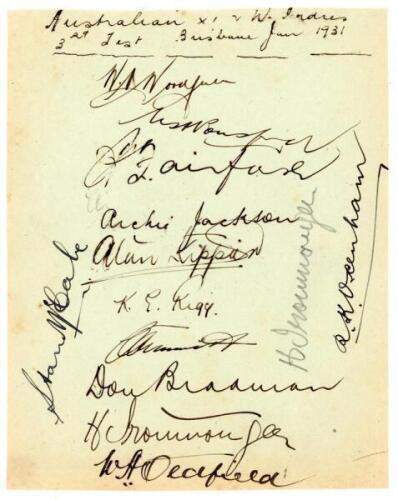 Australian XI v W. Indies
3rd Test Brisbane Jan 1931
W. M. Woodfull
W H Ponsford
A. Fairfax
Archie Jackson
Alan Kippax
K. E. Rigg.
Don Bradman
H Ironmonger
W A Oldfield
Stan McCabe
H Ironmonger
R. K. Oxenham